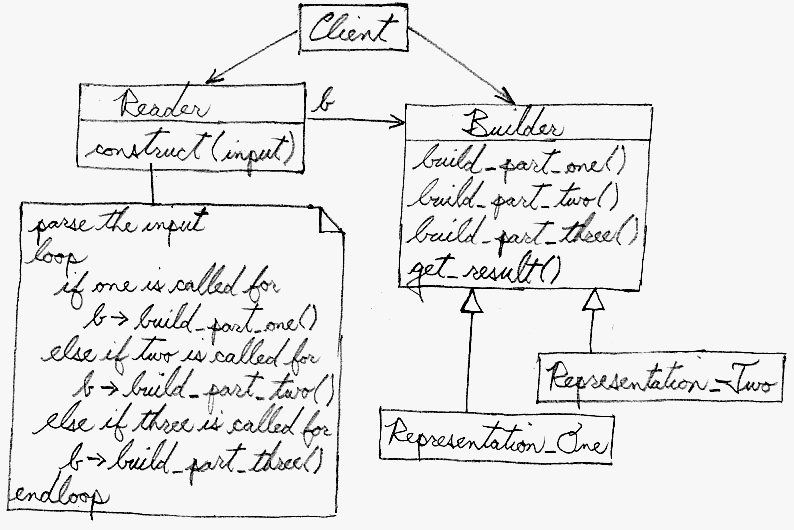 Client
Reader
construct(input)
b
Builder
build_part_one()
build_part_two()
build_part_three()
get_result()
parse the input
loop
if one is called for
b→build_part_one()
else if two is called for
b→build_part_two()
else if three is called for
b→build_part_three()
endloop
Representation_Two
Representation_One